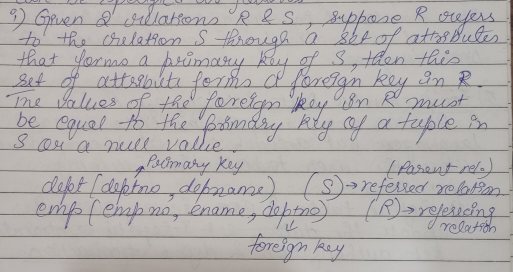 9) Given 2 relations R & S, suppose R refers
to the relation S through a set of attributes
that forms a primary key of S, then this
set of attribute forms a foreign key in R.
The values of the foreign key in R must
be equal to the primary key of a tuple in
S or a null value.
Primary key (Parent rel.)
dept (deptno, depname) (S)→referred relation
emp (emp no, ename, deptno) (R)→referecing
relation
foreign key